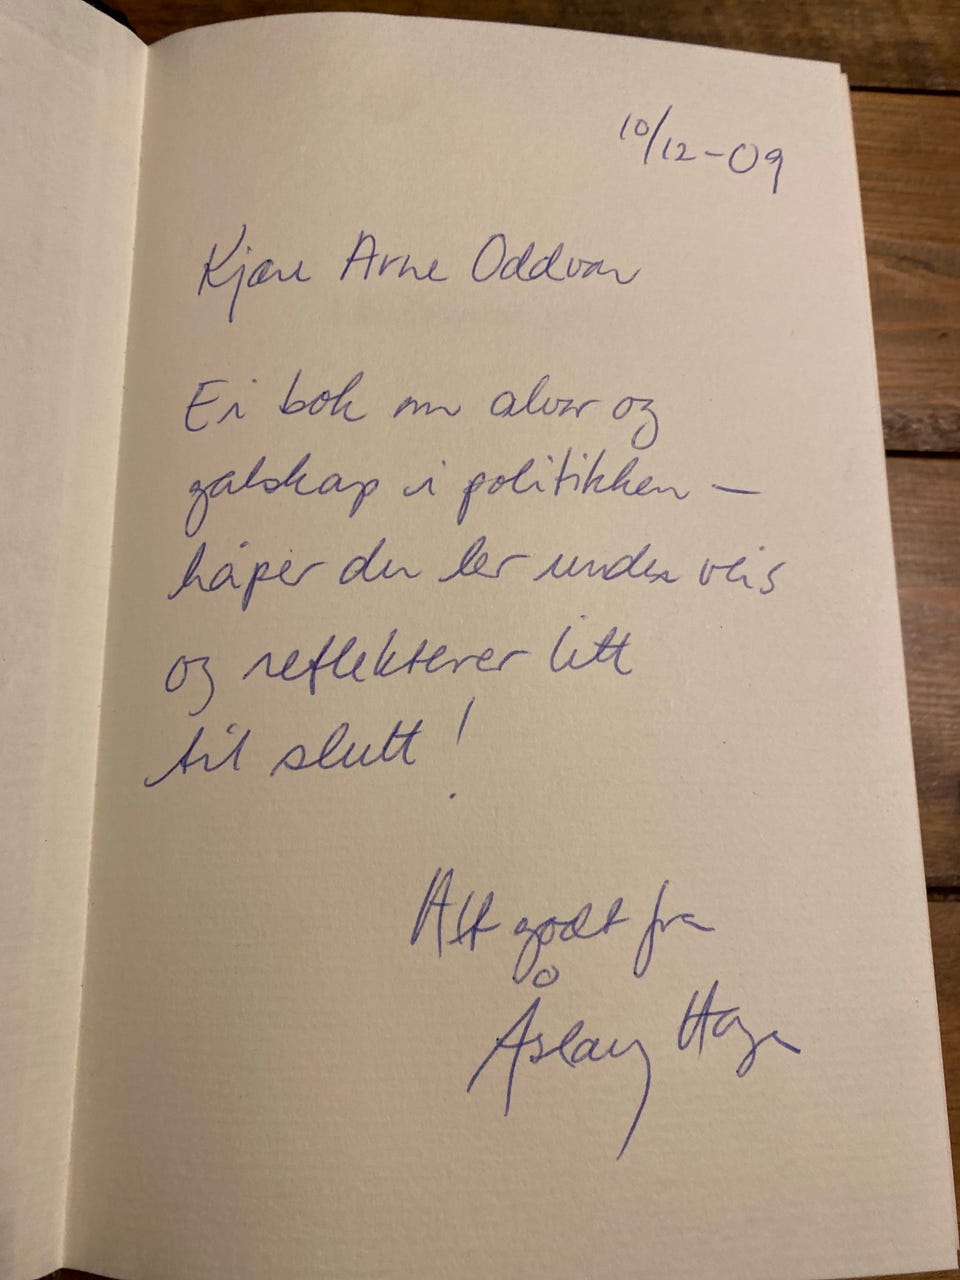 10/12-09
Kjære Arne Oddvar
Ei bok om alvor og
galskap i politikken –
håper du ler underveis
og reflekterer litt
til slutt!
Alt godt fra
Åslaug Haga